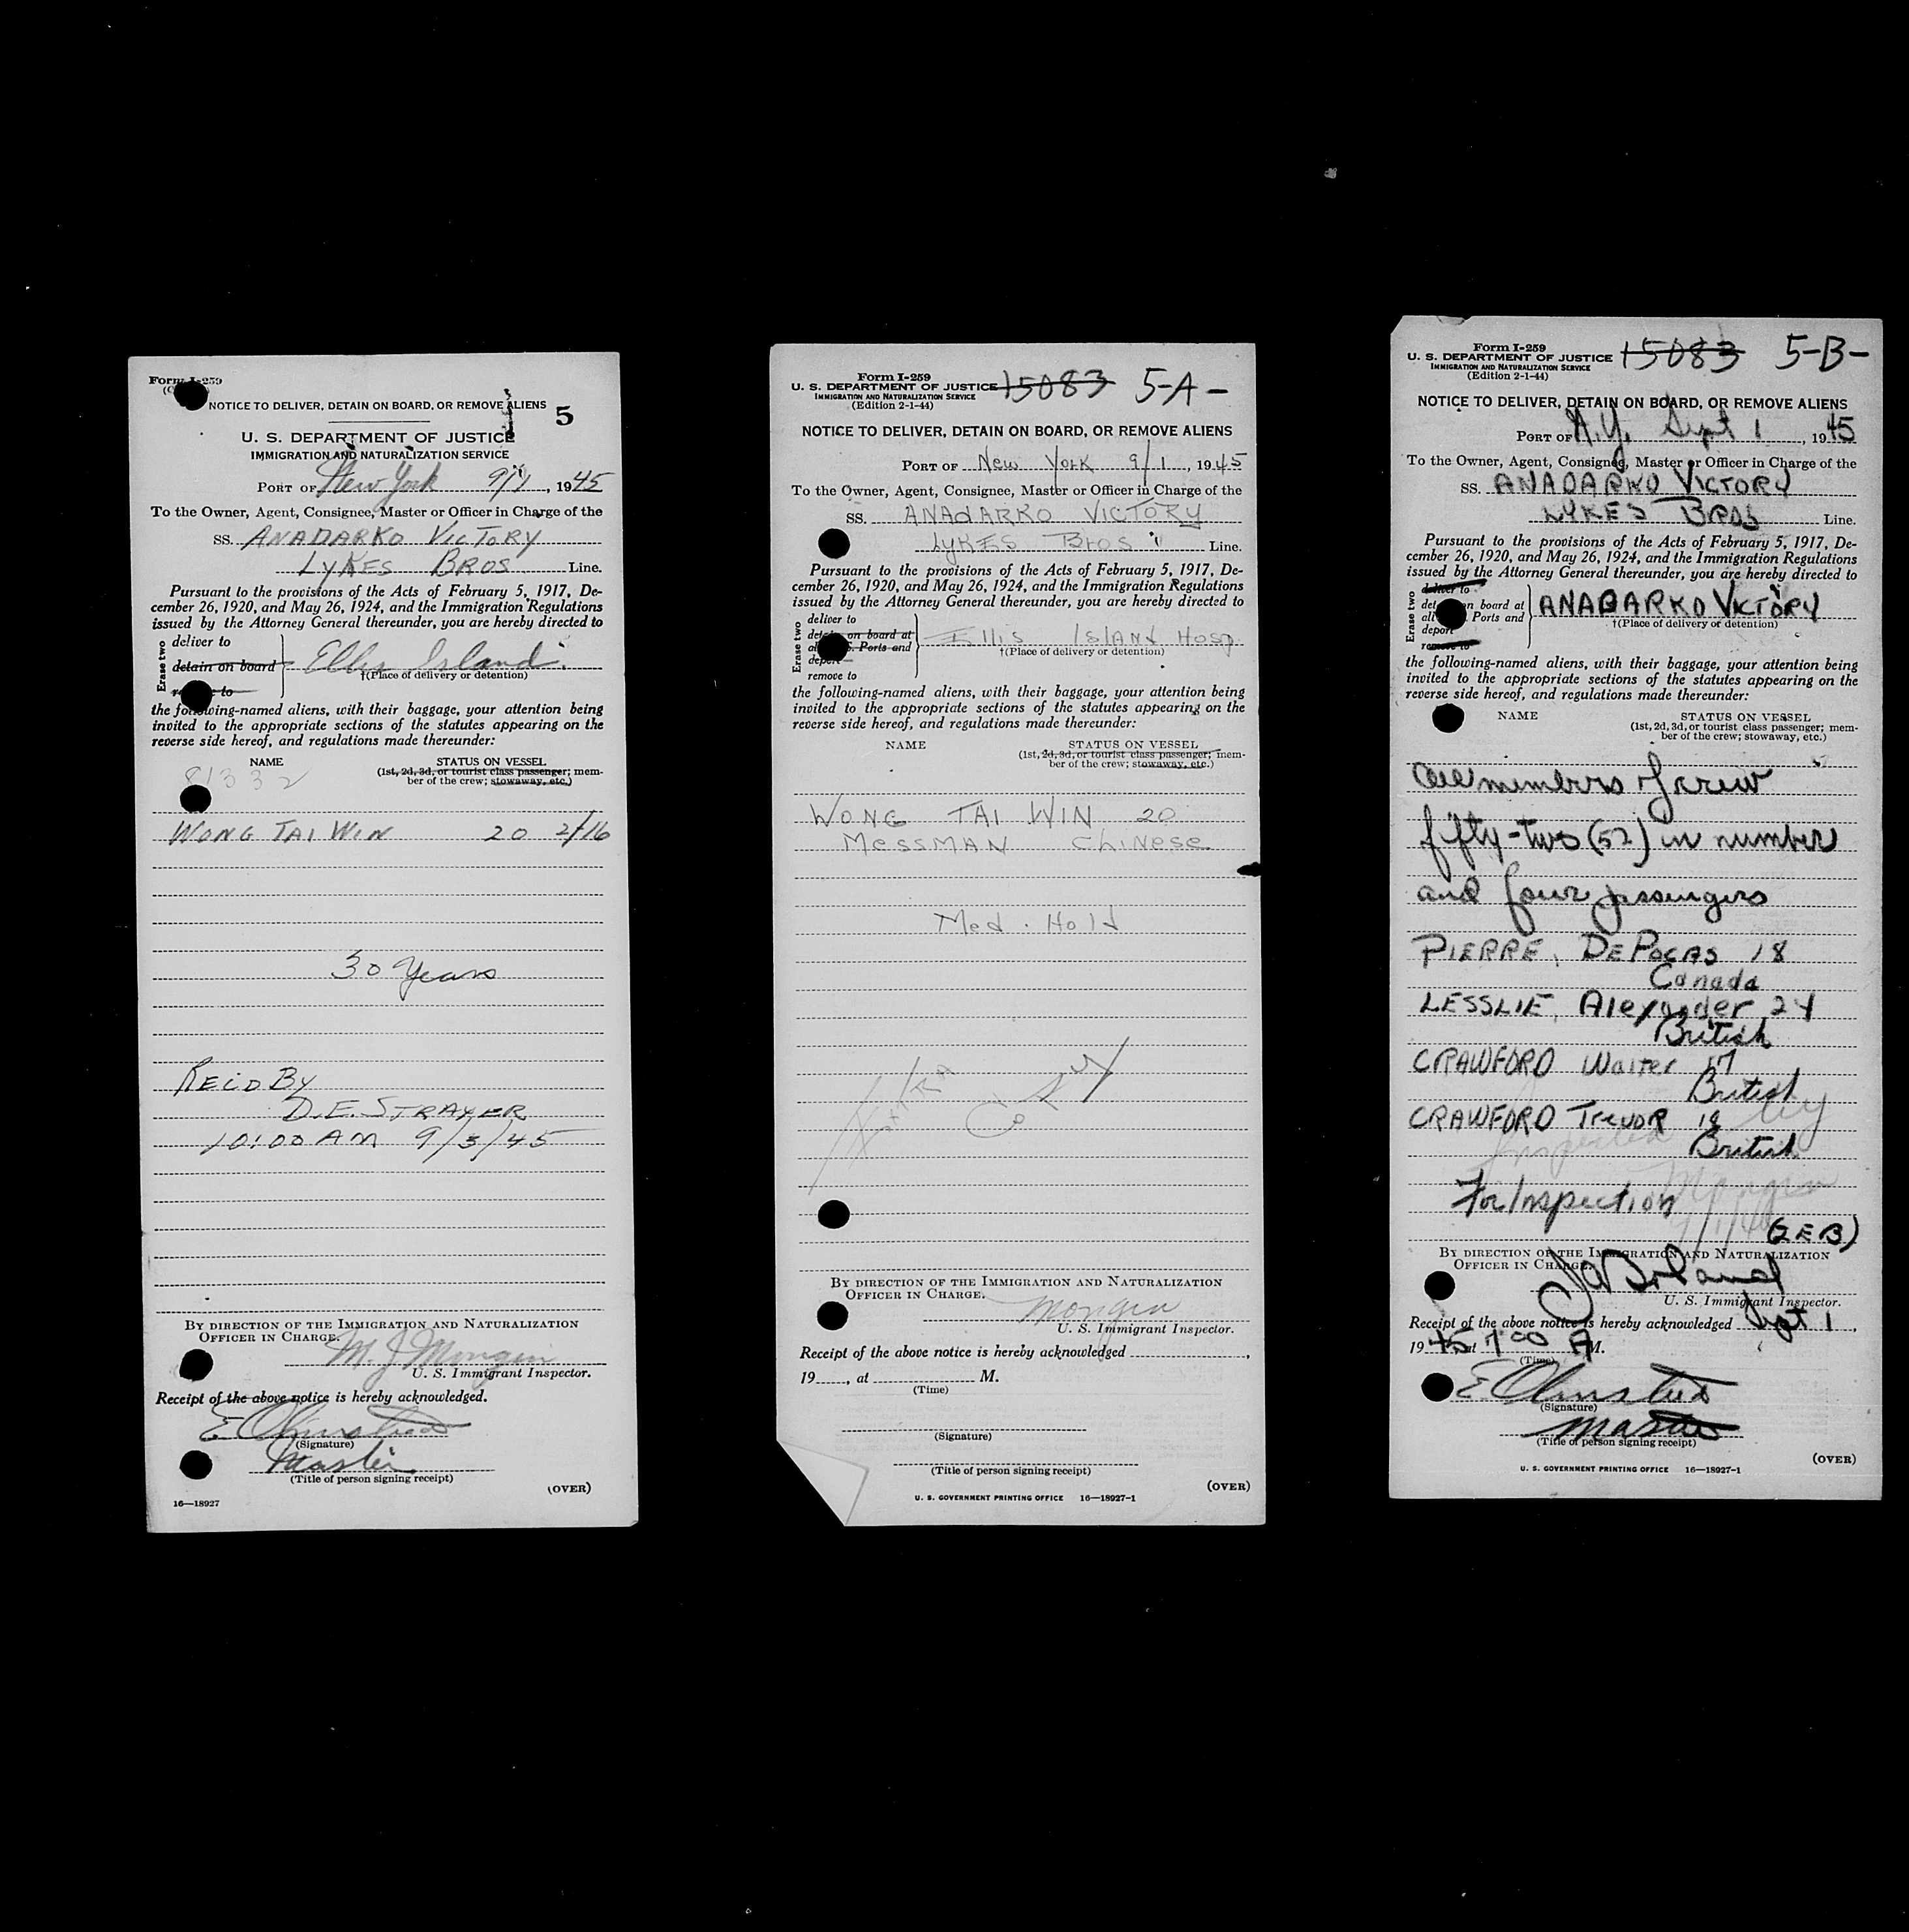 Form I-259
NOTICE TO DELIVER, DETAIN ON BOARD, OR REMOVE ALIENS
5
U. S. DEPARTMENT OF JUSTICE
IMMIGRATION AND NATURALIZATION SERVICE
PORT OF New York 9/1, 1945
To the Owner, Agent, Consignee, Master or Officer in Charge of the
SS. ANADARKO VICTORY
LYKES BROS Line.
Pursuant to the provisions of the Acts of February 5, 1917, De-
cember 26, 1920, and May 26, 1924, and the Immigration Regulations
issued by the Attorney General thereunder, you are hereby directed to
Erase two
deliver to
detain on board
Ellis Island
to
†(Place of delivery or detention)
the following-named aliens, with their baggage, your attention being
invited to the appropriate sections of the statutes appearing on the
reverse side hereof, and regulations made thereunder:
NAME STATUS ON VESSEL
81332 (1st, 2d, 3d, or tourist class passenger; mem-
ber of the crew; stowaway, etc.)
WONG TAI WIN 20 2/16
30 Years
REC'D BY
D.E. STRAYER
10:00 AM 9/3/45
BY DIRECTION OF THE IMMIGRATION AND NATURALIZATION
OFFICER IN CHARGE.
M. J. Mongin
U. S. Immigrant Inspector.
Receipt of the above notice is hereby acknowledged.
E Olmsted
(Signature)
Master
(Title of person signing receipt)
(OVER)
16—18927
Form I-259
U. S. DEPARTMENT OF JUSTICE 15083 5-A-
IMMIGRATION AND NATURALIZATION SERVICE
(Edition 2-1-44)
NOTICE TO DELIVER, DETAIN ON BOARD, OR REMOVE ALIENS
PORT OF New York 9/1, 1945
To the Owner, Agent, Consignee, Master or Officer in Charge of the
SS. ANAdARKO VICTORY
LyKES Bros Line.
Pursuant to the provisions of the Acts of February 5, 1917, De-
cember 26, 1920, and May 26, 1924, and the Immigration Regulations
issued by the Attorney General thereunder, you are hereby directed to
Erase two
deliver to
detain on board at
all U. S. Ports and
deport
remove to
Ellis ISlANd Hosp
†(Place of delivery or detention)
the following-named aliens, with their baggage, your attention being
invited to the appropriate sections of the statutes appearing on the
reverse side hereof, and regulations made thereunder:
NAME STATUS ON VESSEL
(1st, 2d, 3d, or tourist class passenger; mem-
ber of the crew; stowaway, etc.)
WONG TAI WIN 20
MessMAN ChiNese
Med. Hold
Extra Copy
BY DIRECTION OF THE IMMIGRATION AND NATURALIZATION
OFFICER IN CHARGE.
Mongin
U. S. Immigrant Inspector.
Receipt of the above notice is hereby acknowledged ,
19 , at M.
(Time)
(Signature)
(Title of person signing receipt)
(OVER)
U. S. GOVERNMENT PRINTING OFFICE 16—18927-1
Form I-259
U. S. DEPARTMENT OF JUSTICE 15083 5-B-
IMMIGRATION AND NATURALIZATION SERVICE
(Edition 2-1-44)
NOTICE TO DELIVER, DETAIN ON BOARD, OR REMOVE ALIENS
PORT OF N.Y. Sept 1, 1945
To the Owner, Agent, Consignee, Master or Officer in Charge of the
SS. ANADARKO VICTORY
LYKES BROS Line.
Pursuant to the provisions of the Acts of February 5, 1917, De-
cember 26, 1920, and May 26, 1924, and the Immigration Regulations
issued by the Attorney General thereunder, you are hereby directed to
Erase two
deliver to
detain on board at
all Ports and
deport
remove to
ANADARKO VICTORY
†(Place of delivery or detention)
the following-named aliens, with their baggage, your attention being
invited to the appropriate sections of the statutes appearing on the
reverse side hereof, and regulations made thereunder:
NAME STATUS ON VESSEL
(1st, 2d, 3d, or tourist class passenger; mem-
ber of the crew; stowaway, etc.)
All members of crew
fifty-two (52) in number
and four passengers
PIERRE, DePocas 18
Canada
LESSLIE, Alexander 24
British
CRAWFORD Walter 17
British
CRAWFORD Trevor 18
British
Inspected by
Mongin
For Inspection
BY DIRECTION OF THE IMMIGRATION AND NATURALIZATION
OFFICER IN CHARGE.
U. S. Immigrant Inspector.
Receipt of the above notice is hereby acknowledged Sept 1,
1945 at 7 00 A M.
(Time)
E Olmsted
(Signature)
Master
(Title of person signing receipt)
(OVER)
U. S. GOVERNMENT PRINTING OFFICE 16—18927-1